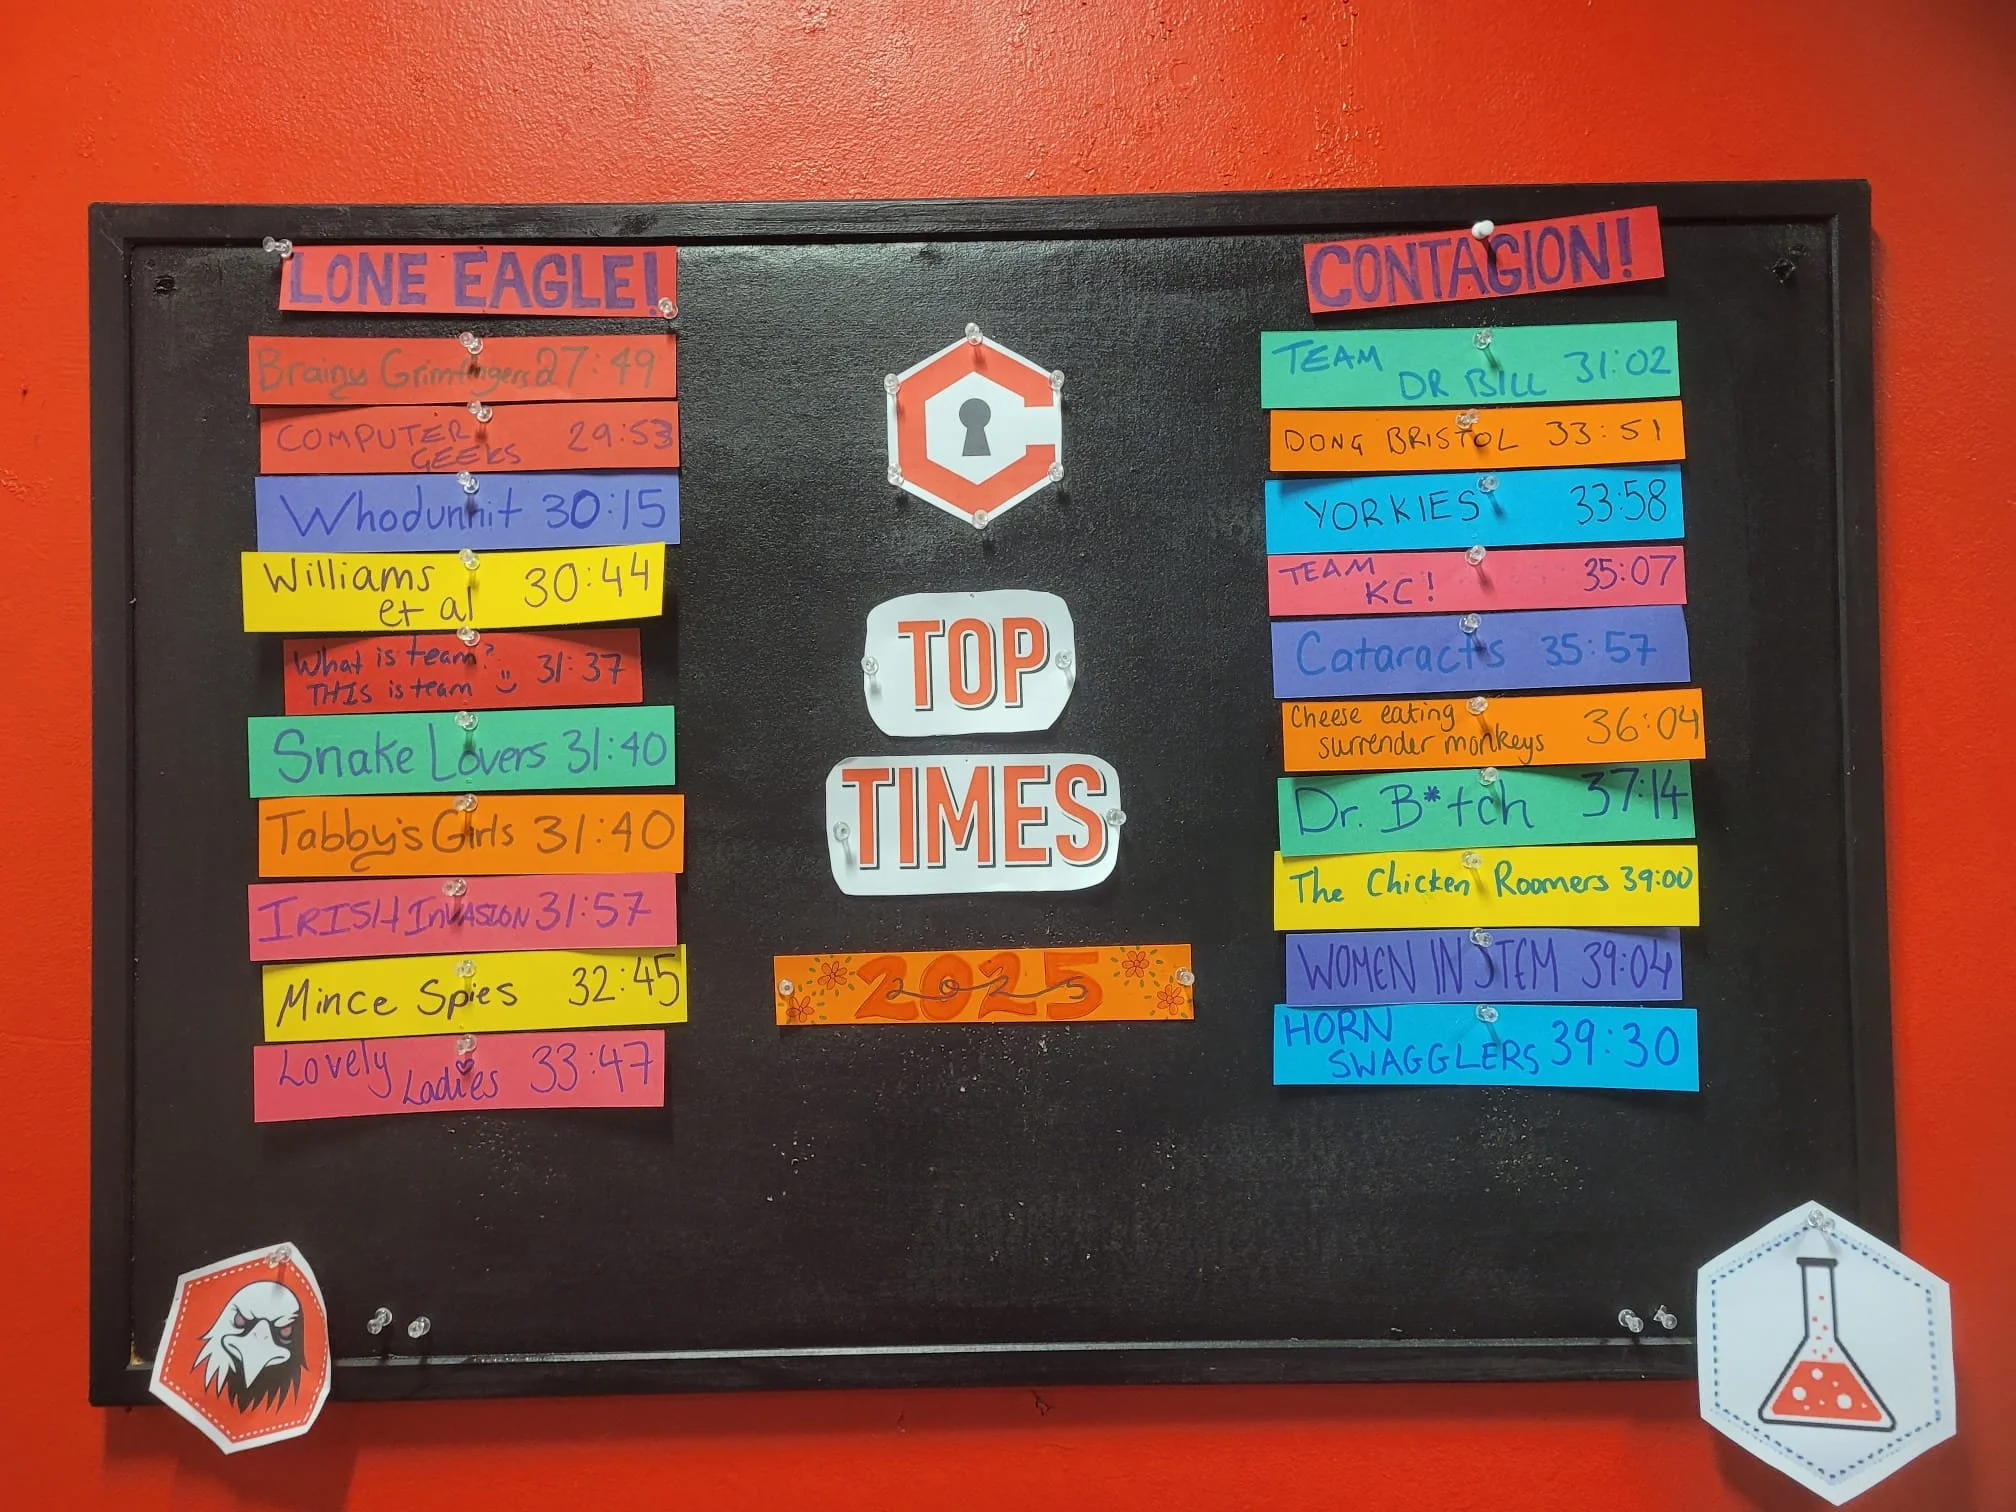 LONE EAGLE!
Brainy Grimfingers 27:49
COMPUTER 29:53
GEEKS
Whodunnit 30:15
Williams 30:44
et al
What is team? 31:37
THIS is team
Snake Lovers 31:40
Tabby's Girls 31:40
IRISH INVASION 31:57
Mince Spies 32:45
Lovely 33:47
Ladies
TOP
TIMES
2025
CONTAGION!
TEAM 31:02
DR BILL
DONG BRISTOL 33:51
YORKIES 33:58
TEAM 35:07
KC!
Cataracts 35:57
Cheese eating 36:04
surrender monkeys
Dr. B*tch 37:14
The Chicken Roomers 39:00
WOMEN IN STEM 39:04
HORN
SWAGGLERS 39:30